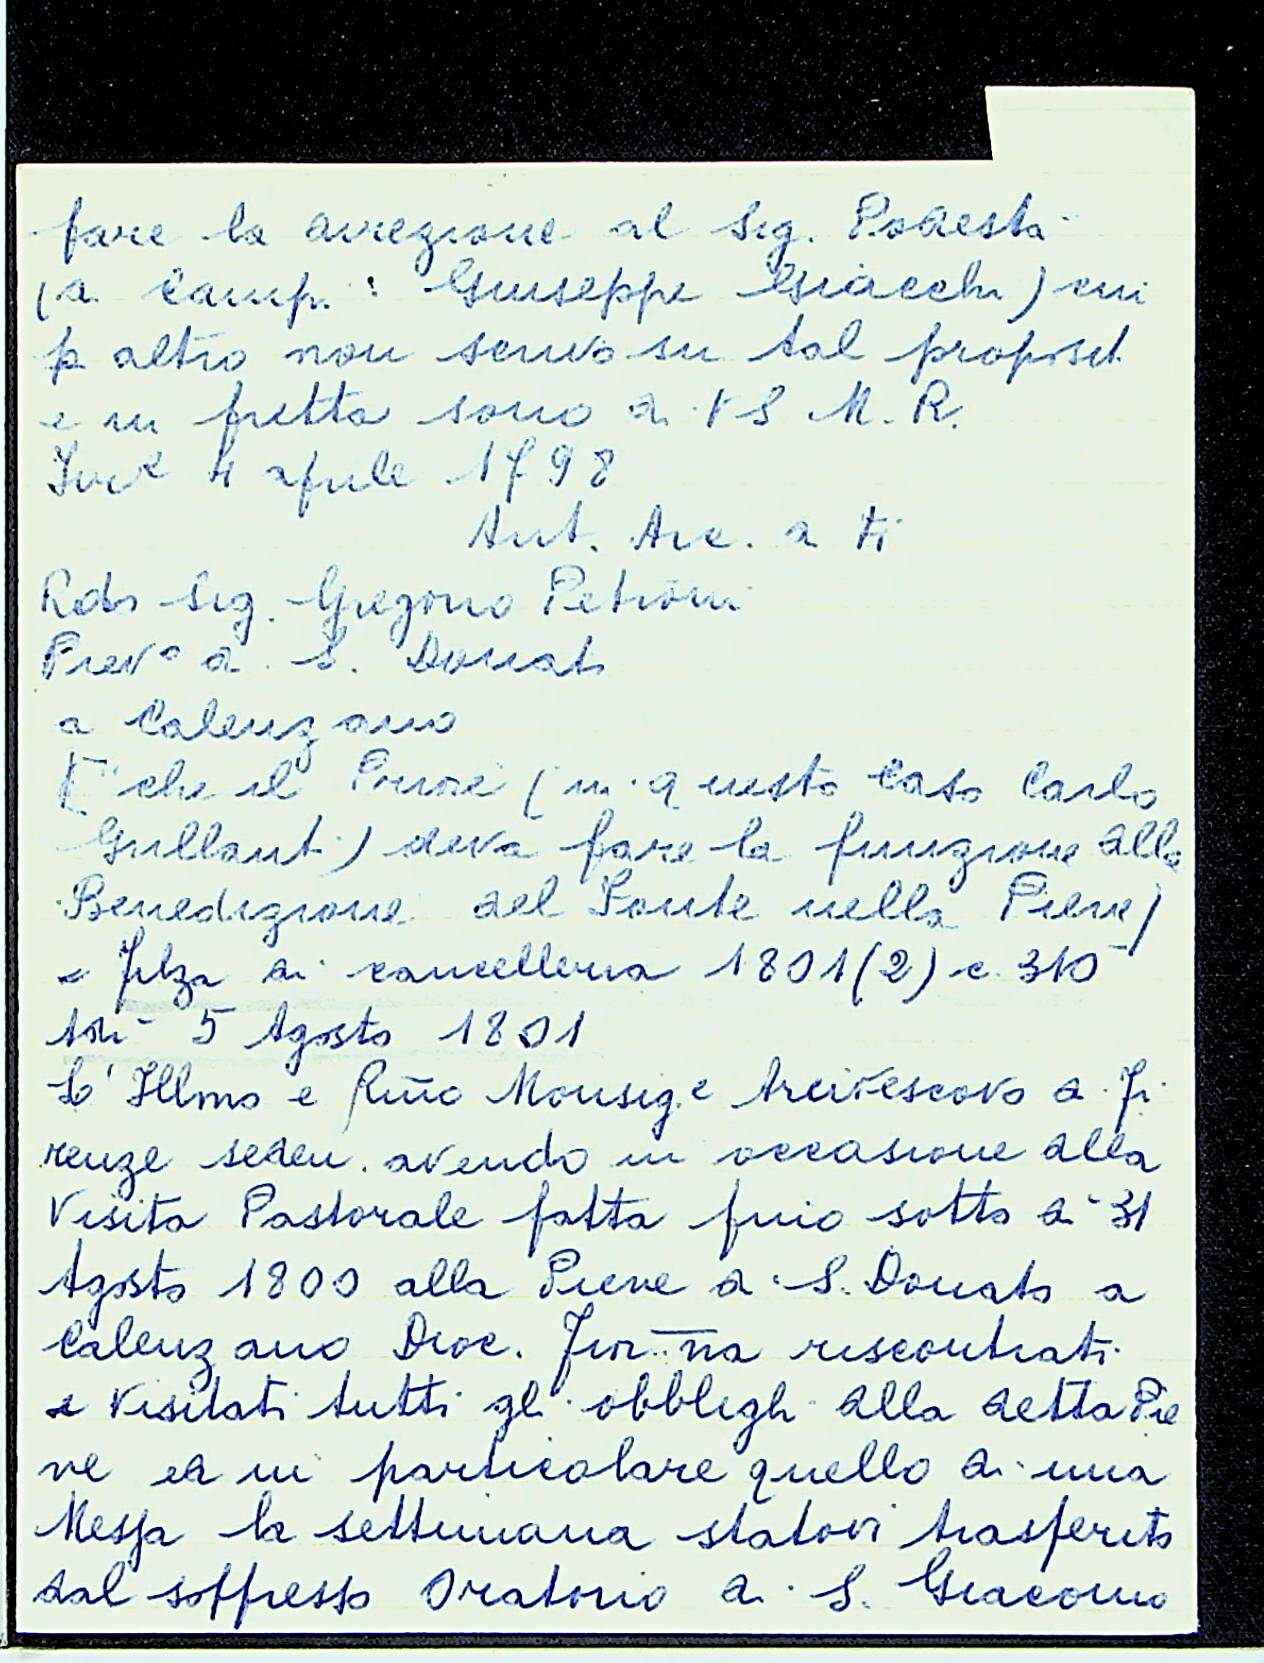 fare la direzione al Sig. Podestà
(di Camp. : Giuseppe Giacchi) cui
p altro non scrivo su tal proposit
e in fretta sono di VS M. R.
4 aprile 1798
Ant. Arc. di Fi
Rdo Sig. Gregorio Petroni
Piev° di S. Donato
a Calenzano
che il Priore (in questo caso Carlo
) deva fare la funzione della
Benedizione del Fonte nella Pieve)
e Filza di cancelleria 1801(2) c. 310
Adi 5 Agosto 1801
L'Illmo e Rmo Monsig.e Arcivescovo di Fi
renze seden. avendo in occasione della
Visita Pastorale fatta fino sotto di 31
Agosto 1800 alla Pieve di S. Donato a
Calenzano Dioc. Fior.na riscontrati
e visitati tutti gli obblighi della detta Pie
ve ed in particolare quello di una
Messa la settimana statovi trasferito
dal soppresso Oratorio di S. Giacomo